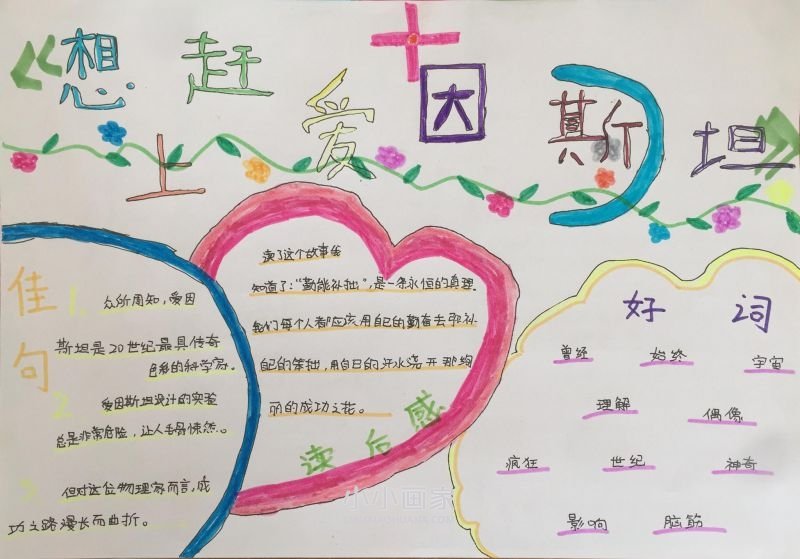 《想赶上爱因斯坦》
佳句
1. 众所周知,爱因
斯坦是20世纪最具传奇
色彩的科学家。
2 爱因斯坦设计的实验
总是非常危险,让人毛骨悚然。
3 但对这位物理家而言,成
功之路漫长而曲折。
读了这个故事我
知道了:“勤能补拙”,是一条永恒的真理。
我们每个人都应该用自己的勤奋去弥补
自己的笨拙,用自己的汗水浇开那绚
丽的成功之花。
读后感
好词
曾经 始终 宇宙
理解 偶像
疯狂 世纪 神奇
影响 脑筋
小小画家